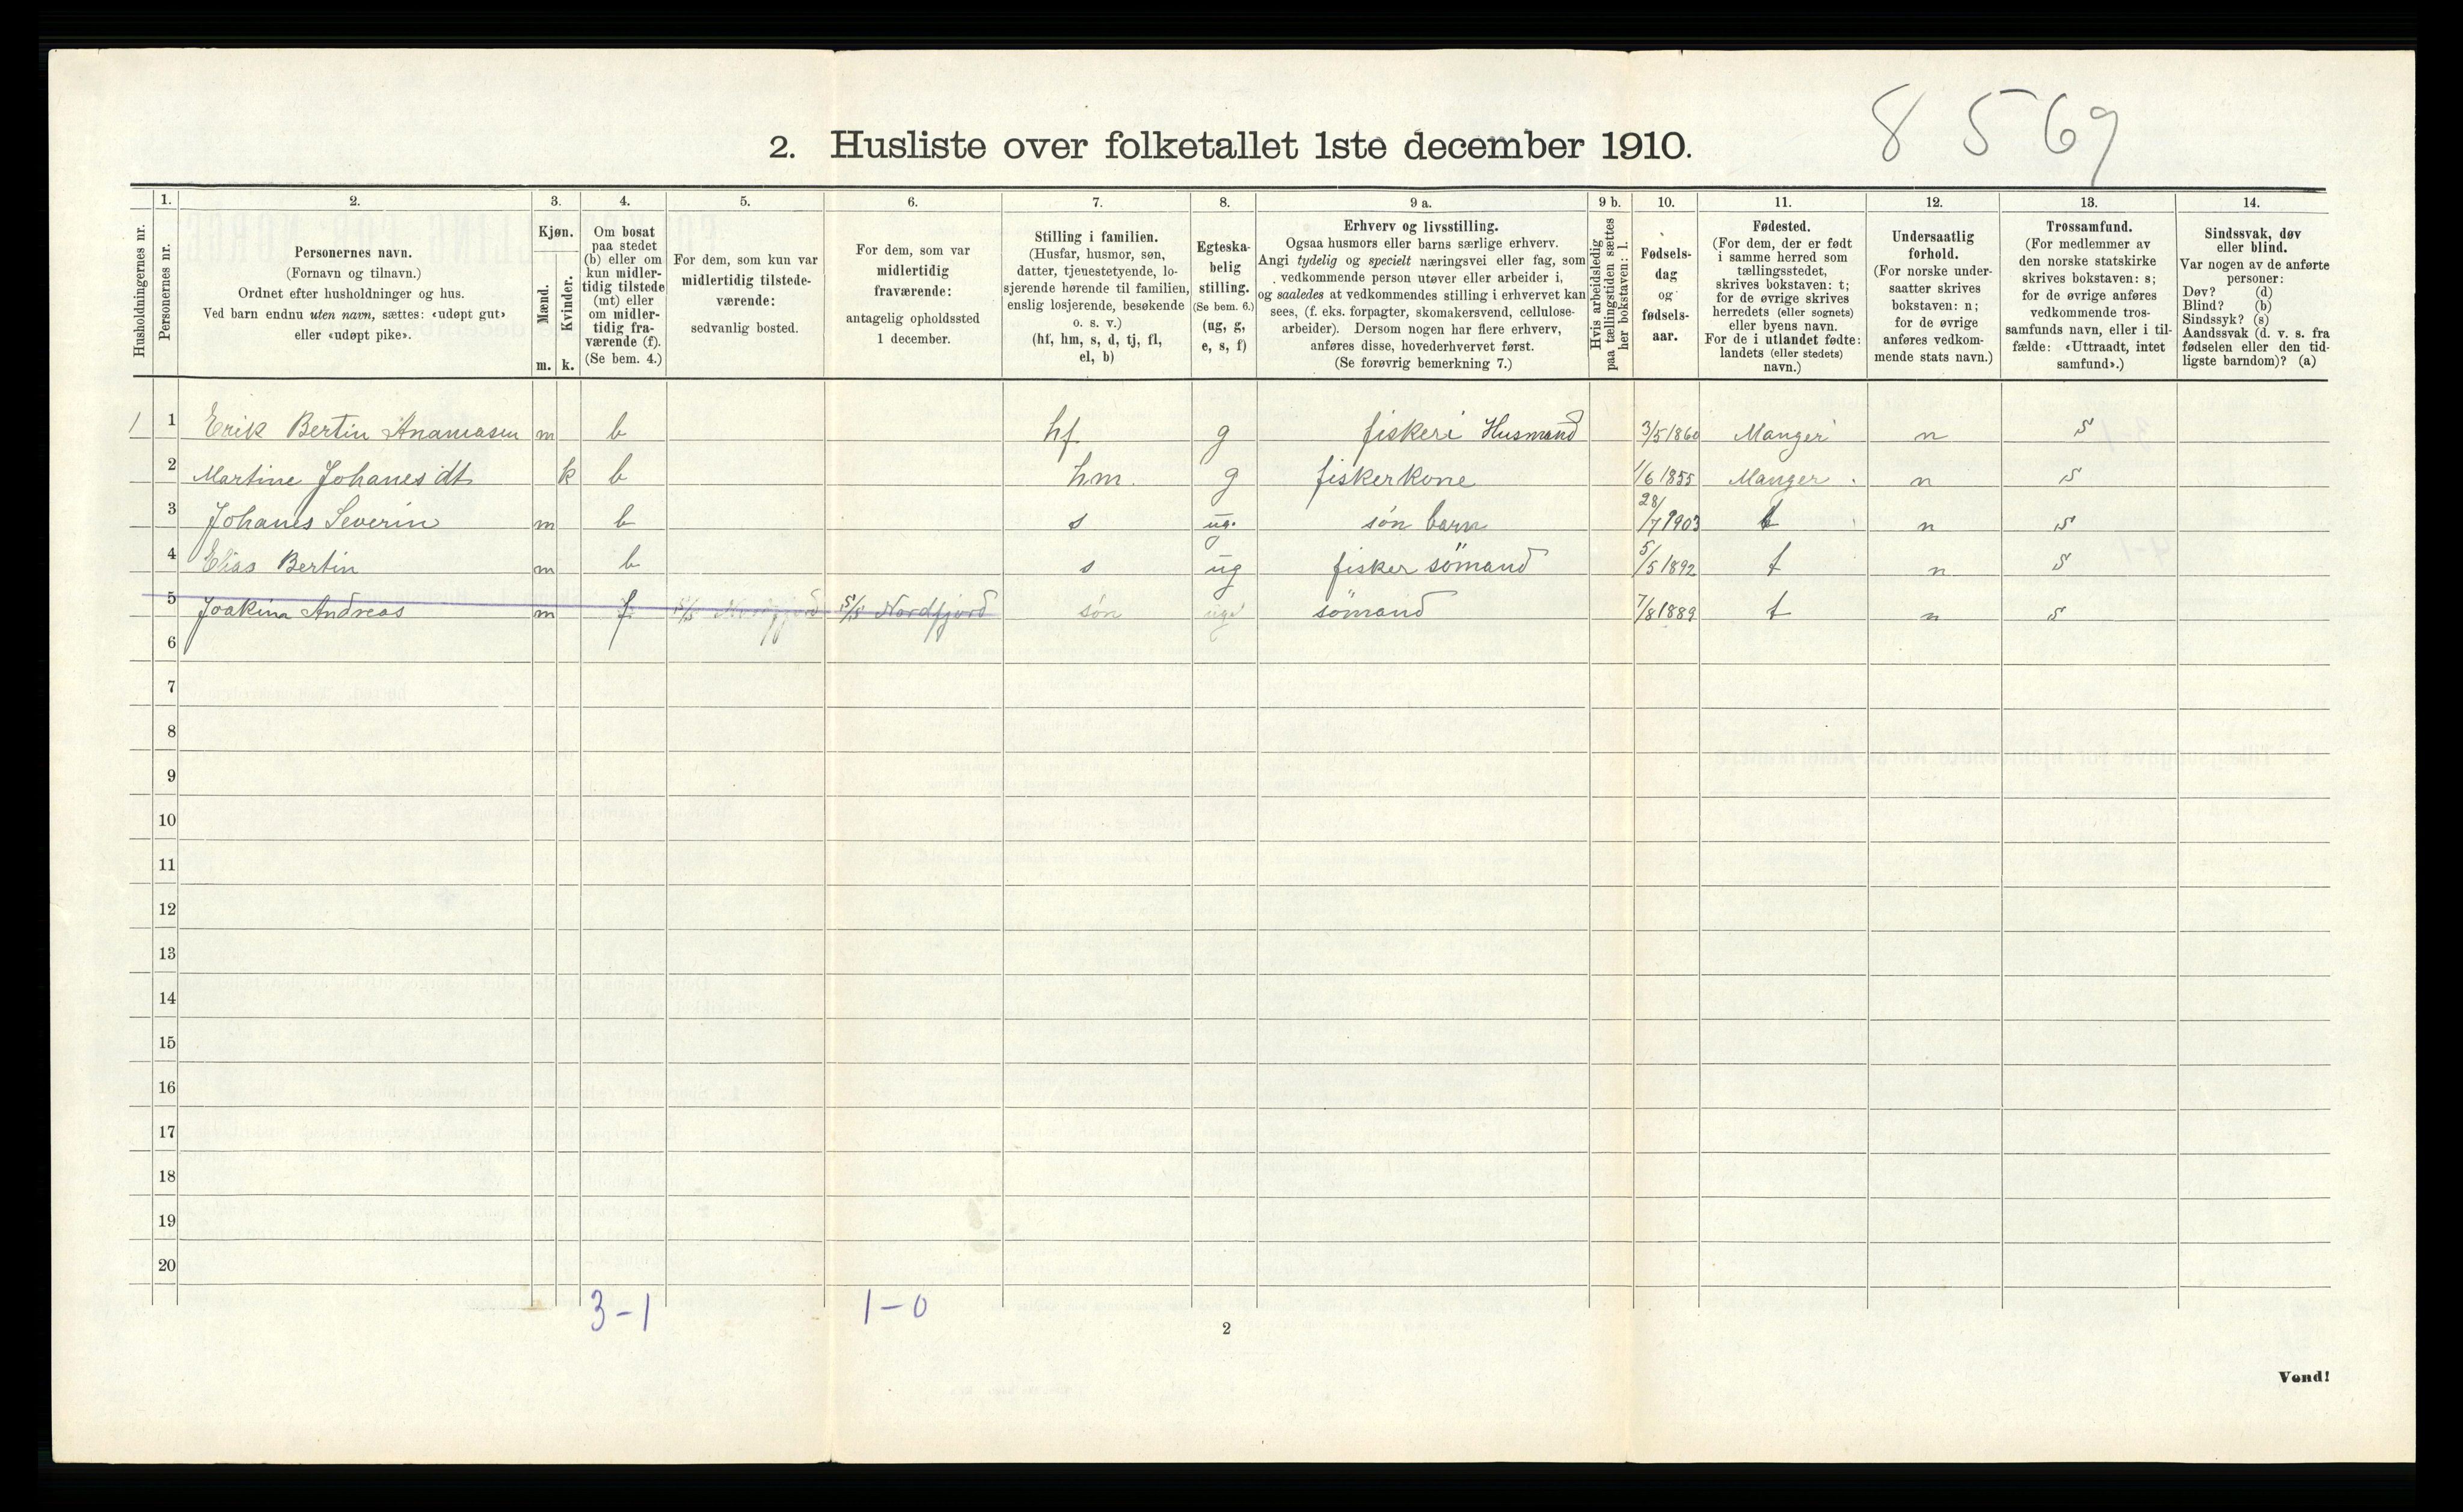 8 5 69
2. Husliste over folketallet 1ste december 1910.
Husholdningernes nr.
1.
Personernes nr.
2.
Personernes navn.
(Fornavn og tilnavn.)
Ordnet efter husholdninger og hus.
Ved barn endnu uten navn, sættes: «udøpt gut»
eller «udøpt pike».
3.
Kjøn.
Mænd.
m.
Kvinder.
k.
4.
Om bosat
paa stedet
(b) eller om
kun midler-
tidig tilstede
(mt) eller
om midler-
tidig fra-
værende (f).
(Se bem. 4.)
5.
For dem, som kun var
midlertidig tilstede-
værende:
sedvanlig bosted.
6.
For dem, som var
midlertidig
fraværende:
antagelig opholdssted
1 december.
7.
Stilling i familien.
(Husfar, husmor, søn,
datter, tjenestetyende, lo-
sjerende hørende til familien,
enslig losjerende, besøkende
o. s. v.)
(hf, hm, s, d, tj, fl,
el, b)
8.
Egteska-
belig
stilling.
(Se bem. 6.)
(ug, g,
e, s, f)
9 a.
Erhverv og livsstilling.
Ogsaa husmors eller barns særlige erhverv.
Angi tydelig og specielt næringsvei eller fag, som
vedkommende person utøver eller arbeider i,
og saaledes at vedkommendes stilling i erhvervet kan
sees, (f. eks. forpagter, skomakersvend, cellulose-
arbeider). Dersom nogen har flere erhverv,
anføres disse, hovederhvervet først.
(Se forøvrig bemerkning 7.)
9 b.
Hvis arbeidsledig
paa tællingstiden sættes
her bokstaven: l.
10.
Fødsels-
dag
og
fødsels-
aar.
11.
Fødested.
(For dem, der er født
i samme herred som
tællingsstedet,
skrives bokstaven: t;
for de øvrige skrives
herredets (eller sognets)
eller byens navn.
For de i utlandet fødte:
landets (eller stedets)
navn.)
12.
Undersaatlig
forhold.
(For norske under-
saatter skrives
bokstaven: n;
for de øvrige
anføres vedkom-
mende stats navn.)
13.
Trossamfund.
(For medlemmer av
den norske statskirke
skrives bokstaven: s;
for de øvrige anføres
vedkommende tros-
samfunds navn, eller i til-
fælde: «Uttraadt, intet
samfund».)
14.
Sindssvak, døv
eller blind.
Var nogen av de anførte
personer:
Døv? (d)
Blind? (b)
Sindssyk? (s)
Aandssvak (d. v. s. fra
fødselen eller den tid-
ligste barndom)? (a)
1 1 Erik Bertin Ananiasen m b hf. g fiskeri Husmand 3/5 1860 Manger n s
2 Martine Johanesdt k b hm. g fiskerkone 1/6 1855 Manger n s
3 Johanes Severin m b s ug. søn barn 28/7 1903 t n s
4 Elias Bertin m b s ug fisker sömand 5/5 1892 t n s
5 Joakim Andreas m f S/S Nordfjord S/S Nordfjord søn ug sömand 7/8 1889 t n s
6
7
8
9
10
11
12
13
14
15
16
17
18
19
20
3-1 1-0
2
Vend!